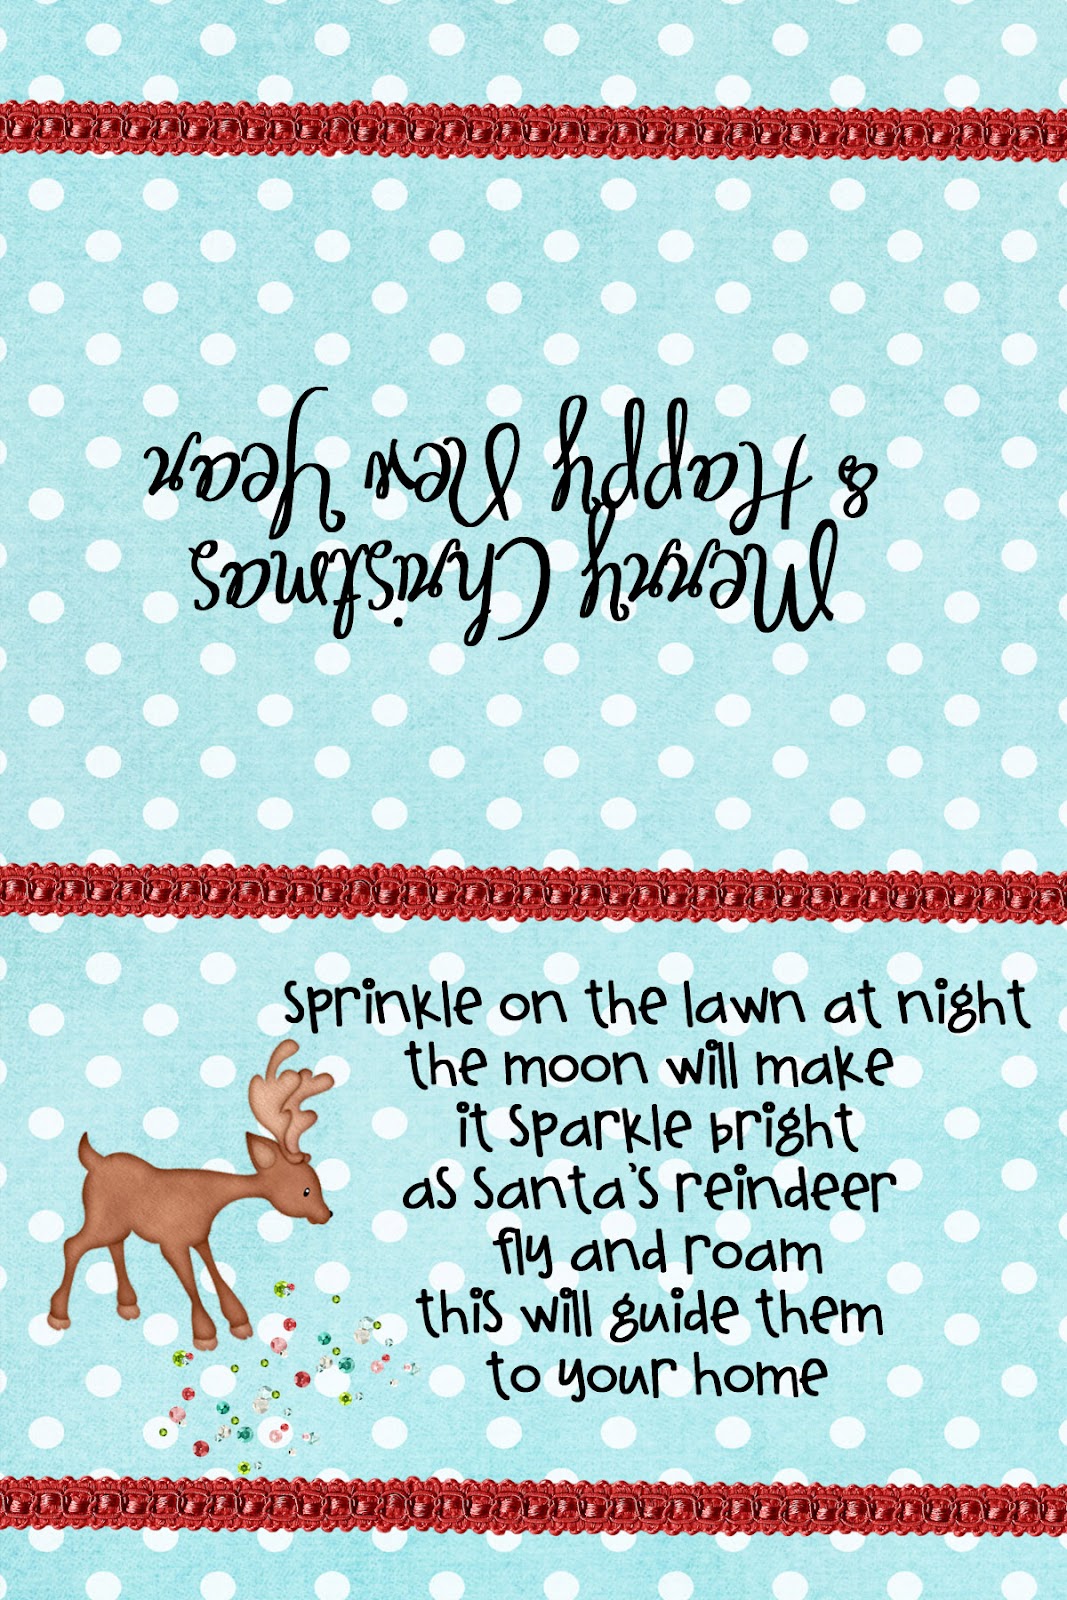 Merry Christmas
& Happy New Year
Sprinkle on the lawn at night
the moon will make
it sparkle bright
as Santa's reindeer
fly and roam
this will guide them
to your home